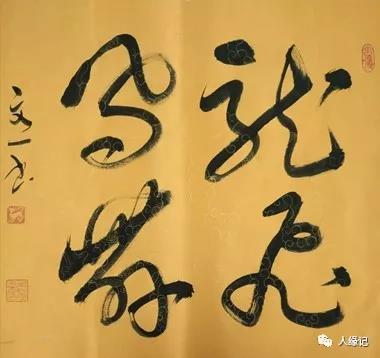 龍飛
鳳舞
文一书
人缘记